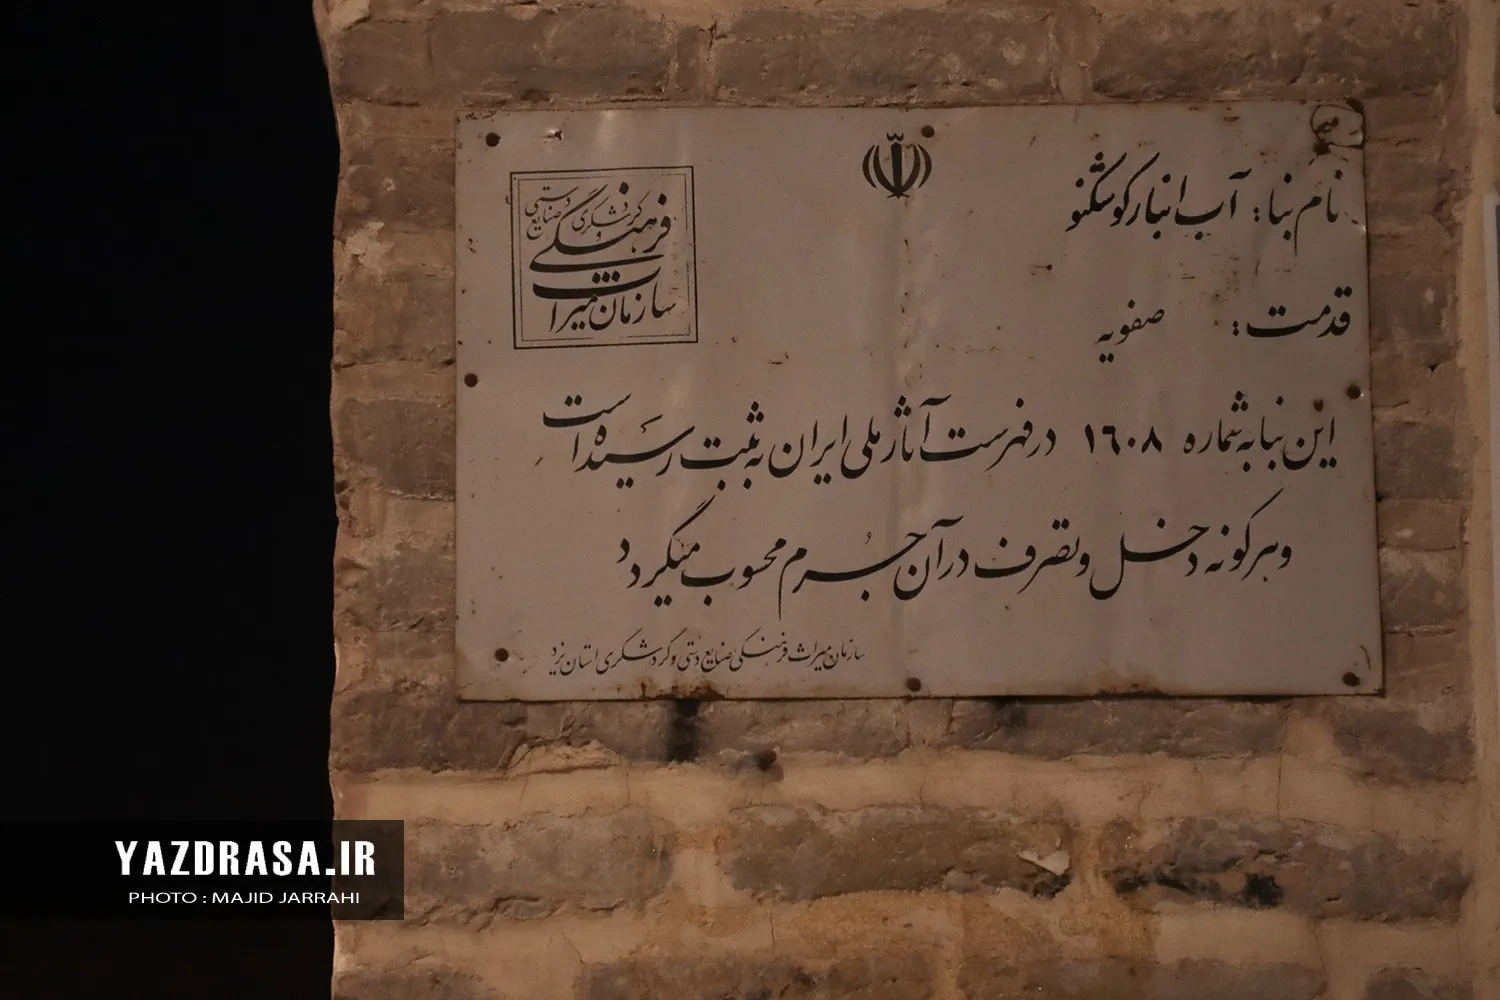 نام بنا: آب انبار کوشکنو
قدمت: صفویه
این بنا به شماره ۱۶۰۸ در فهرست آثار ملی ایران به ثبت رسیده است
و هر گونه دخل و تصرف در آن جُرم محسوب میگردد
سازمان میراث فرهنگی صنایع دستی و گردشگری استان یزد
سازمان میراث
فرهنگی
صنایع دستی
و گردشگری
YAZDRASA.IR
PHOTO : MAJID JARRAHI